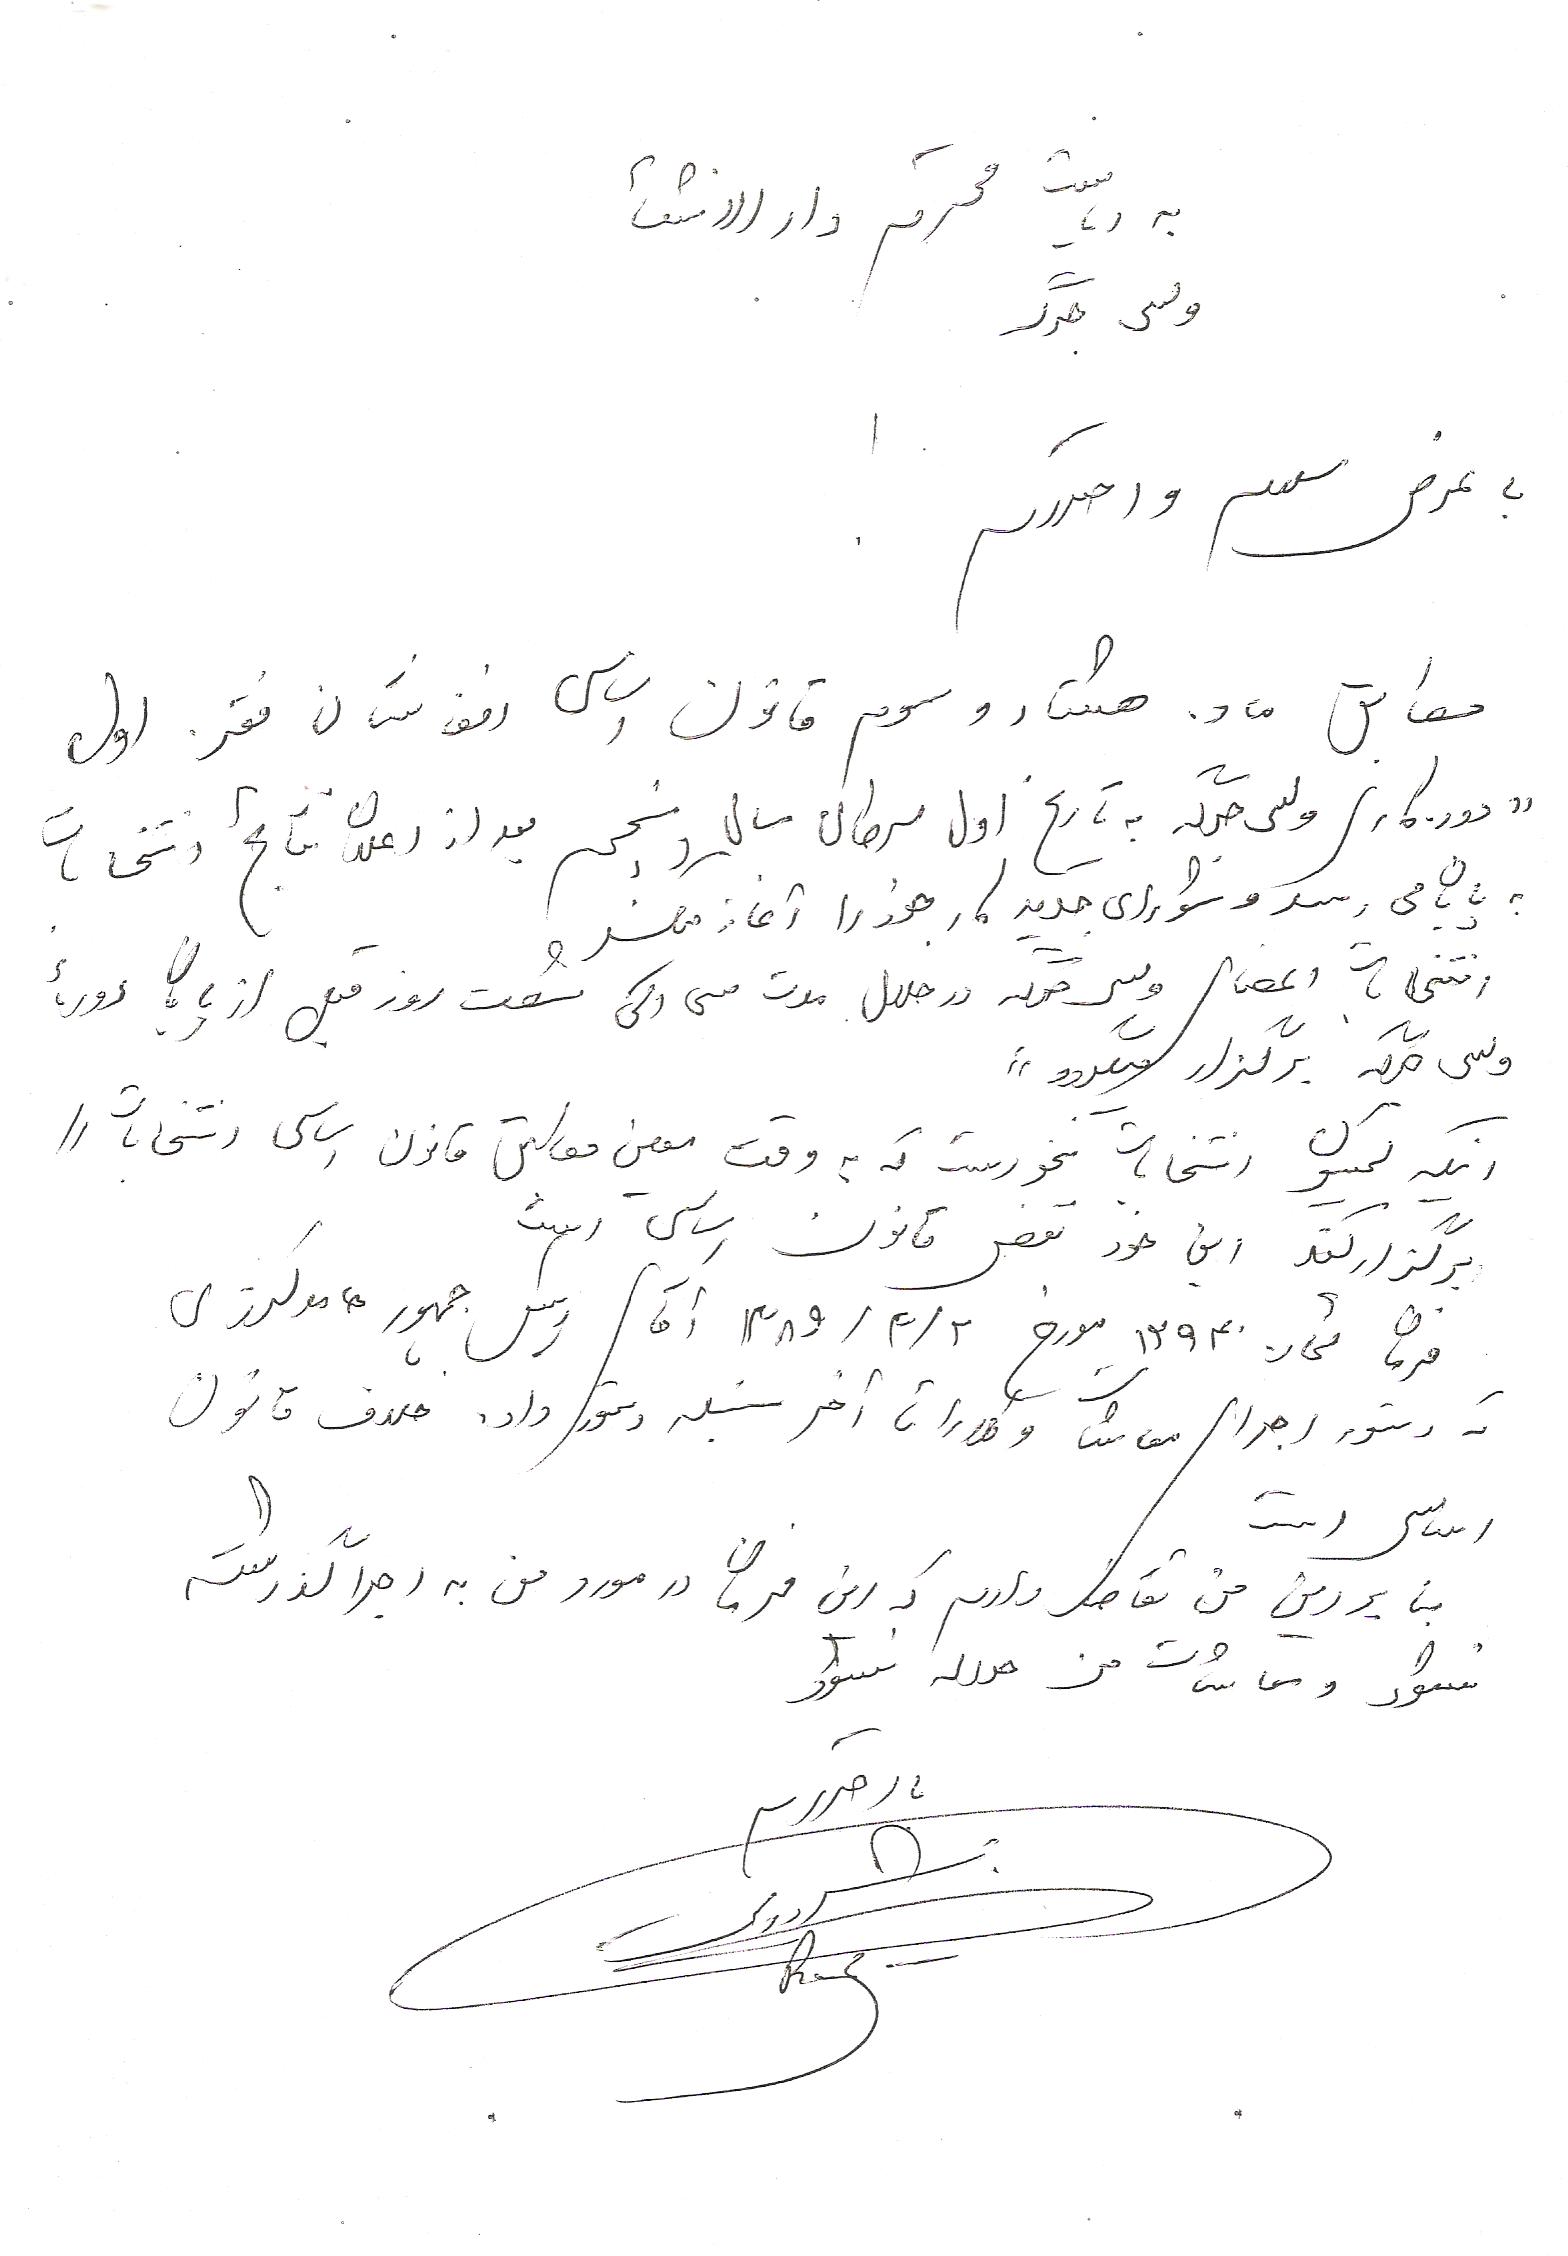 به ریاست محترم دارالانشأ
ولسی جرگه
با عرض سلام و احترام !
مطابق ماده هشتاد و سوم قانون اساسی افغانستان فقره اول
"دوره کاری ولسی جرگه به تاریخ اول سرطان سال پنجم بعد از اعلان نتایج انتخابات
به پایان می رسد و شورای جدید کار خود را آغاز میکند
انتخابات اعضای ولسی جرگه در خلال مدت سی الی شصت روز قبل از پایان دورهٔ
ولسی جرگه برگزار میگردد"
اینکه کمیسیون انتخابات نخواست که به وقت معین مطابق قانون اساسی انتخابات را
برگزار کند این خود نقض قانون اساسی است
فرمان شماره ۱۲۹۴۰ مورخ ۱۳۸۹/۴/۲ آقای رئیس جمهور حامد کرزی
که دستور اجرای معاشات وکلا را تا آخر سنبله دستور داده خلاف قانون
اساسی است
بنا بر این من تقاضا دارم که این فرمان در مورد من به اجرا گذاشته
نشود و معاشات من حواله نشود
با احترام